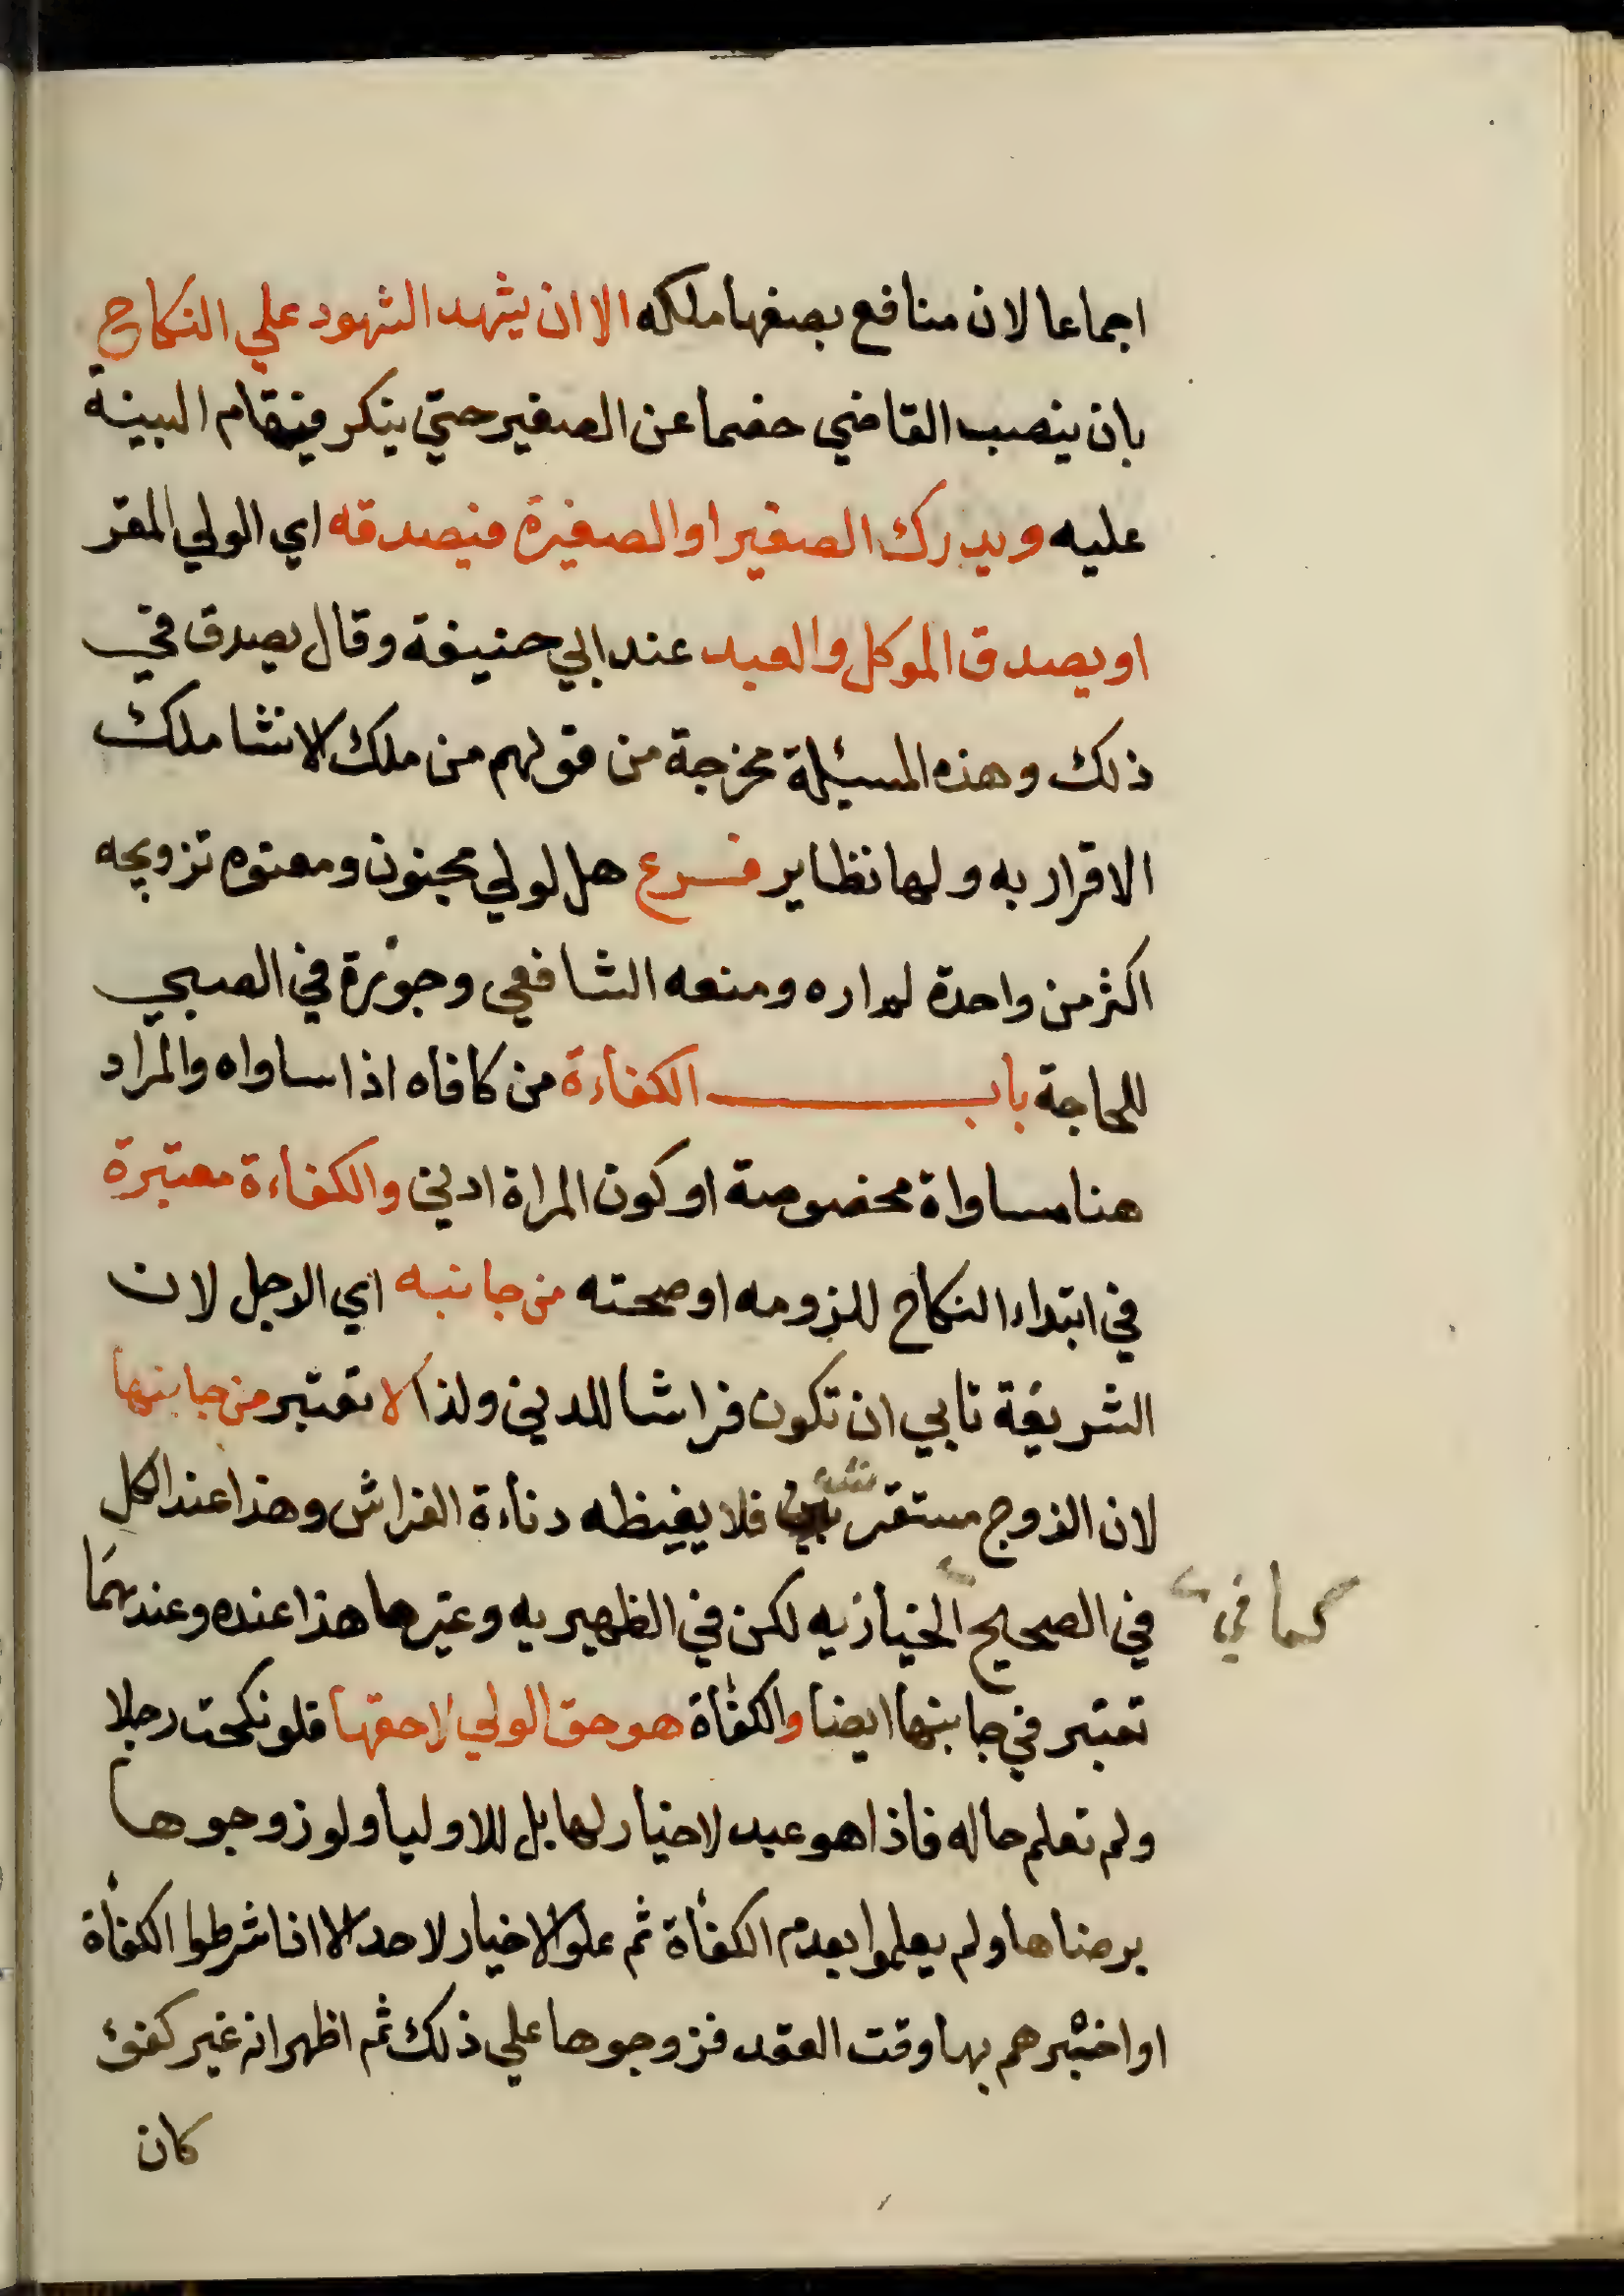 اجماعا لان منافع بضعها ملكه الا ان يشهد الشهود علي النكاح
بان ينصب القاضي خصما عن الصغير حتي ينكر فيقام البينة
عليه ويدرك الصغير او الصغيرة فيصدقه اي الولي المقر
او يصدق الموكل والعبد عند ابي حنيفة وقال يصدق في
ذلك وهذه المسئلة مخرجة من قولهم من ملك الانشا ملك
الاقرار به ولها نظاير فرع هل لولي مجنون ومعتوه تزويجه
اكثر من واحدة لم اره ومنعه الشافعي وجوزة في الصبي
للحاجة باب الكفاءة من كافاه اذا ساواه والمراد
هنا مساواة مخصوصة او كون المراة ادني والكفاءة معتبرة
في ابتداء النكاح للزومه او صحته من جانبه اي الرجل لان
الشريفة تابي ان تكون فراشا للدني ولذا لا تعتبر من جانبها
لان الزوج مستفرش فلا يغيظه دناءة الفراش وهذا عند الكل
في الصحيح الخبازيه لكن في الظهيريه وغيرها هذا عنده وعندهما
كما في
تعتبر في جانبها ايضا والكفأة هو حق الولي لا حقها فلو نكحت رجلا
ولم تعلم حاله فاذا هو عبد لا خيار لها بل للاوليا ولو زوجوها
برضاها ولم يعلموا بعدم الكفأة ثم علموا لا خيار لاحد الا اذا شرطوا الكفأة
او اخبرهم بها وقت العقد فزوجوها علي ذلك ثم اظهر انه غير كفئ
كان